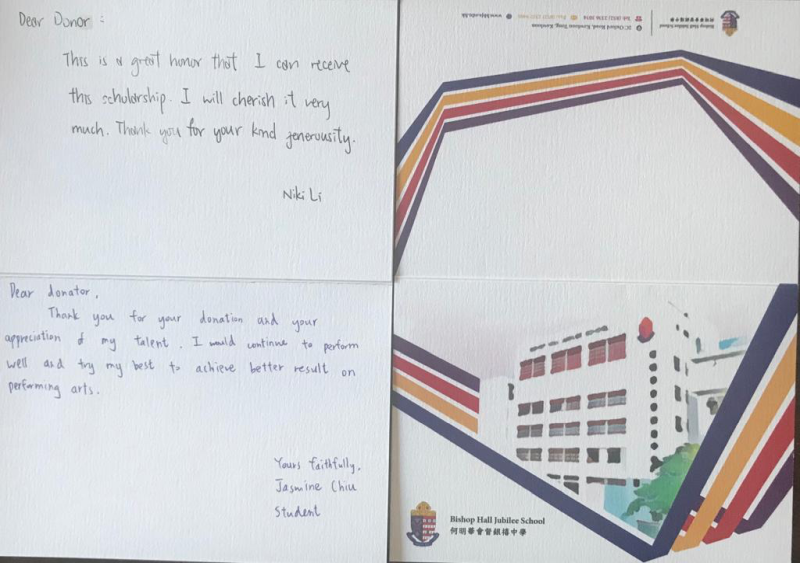 Dear Donor :
This is a great honor that I can receive
this scholarship. I will cherish it very
much. Thank you for your kind generousity.
Niki Li
Dear donator,
Thank you for your donation and your
appreciation of my talent. I would continue to perform
well and try my best to achieve better result on
performing arts.
Yours faithfully,
Jasmine Chiu
Student
Bishop Hall Jubilee School
何明華會督銀禧中學
Bishop Hall Jubilee School
何明華會督銀禧中學